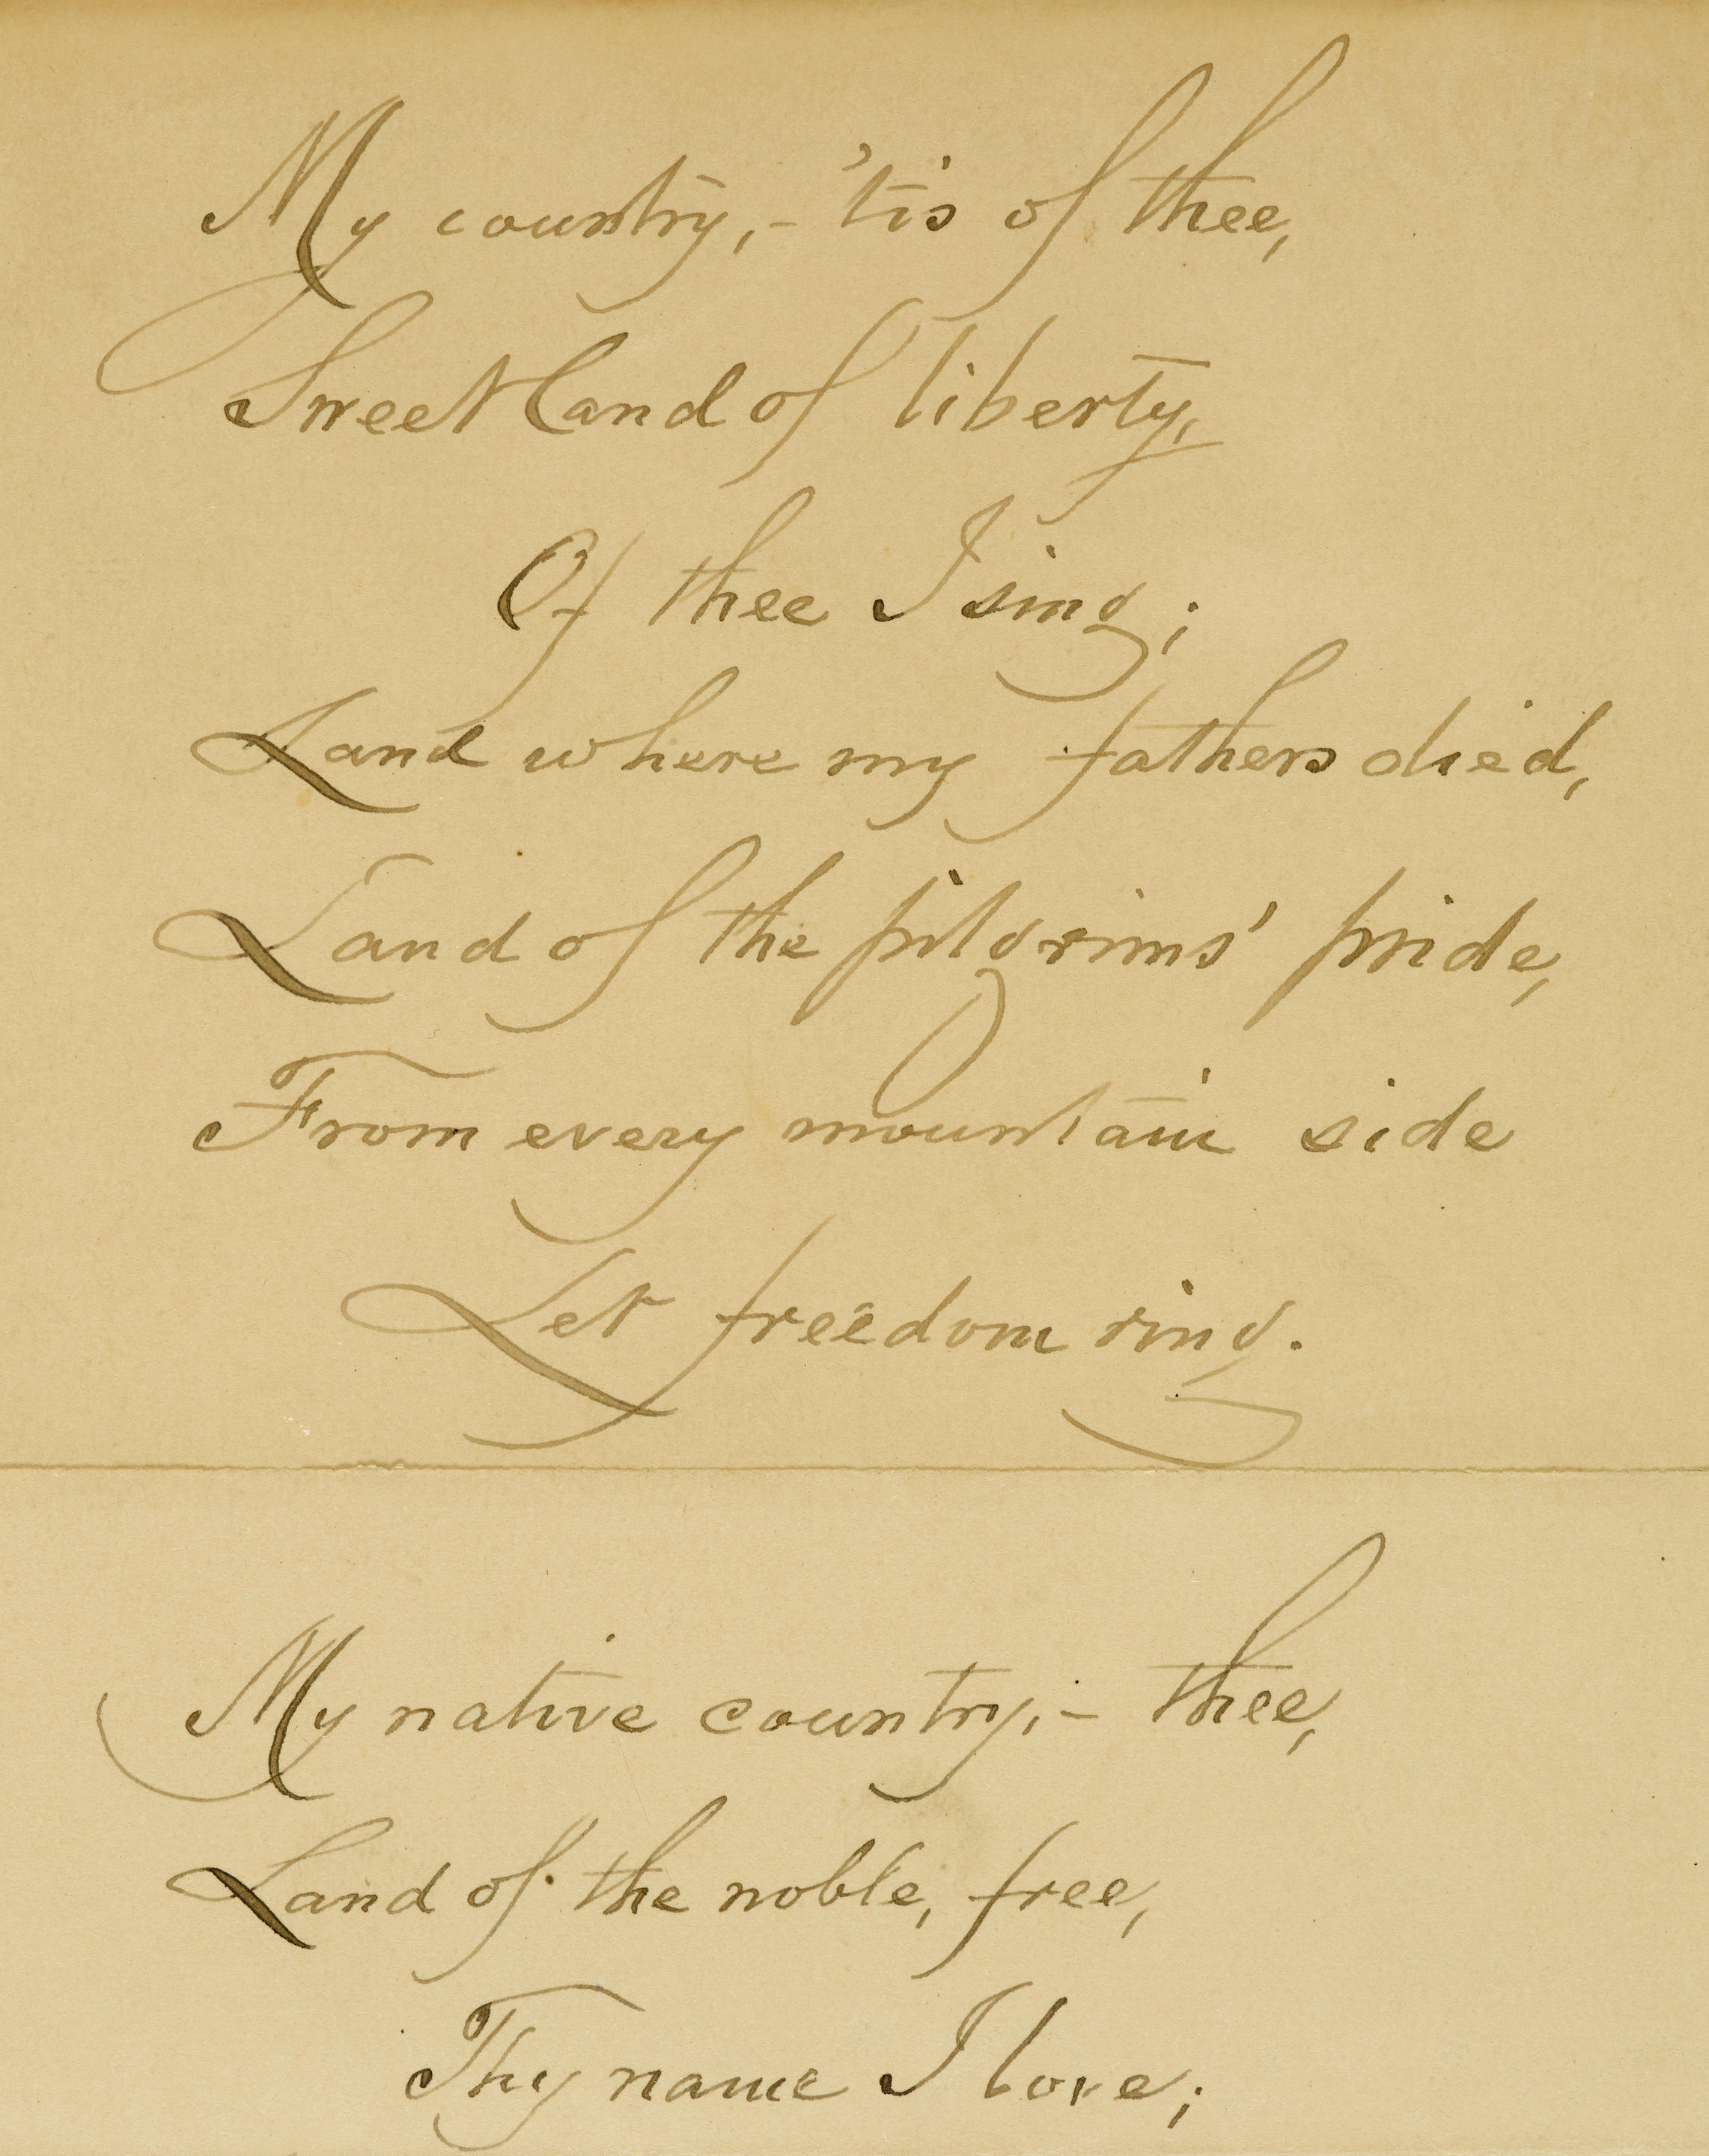 My country,- 'tis of thee,
Sweet land of liberty,
Of thee I sing;
Land where my fathers died,
Land of the pilgrims' pride,
From every mountain side
Let freedom ring.
My native country,- thee,
Land of the noble, free,
Thy name I love;